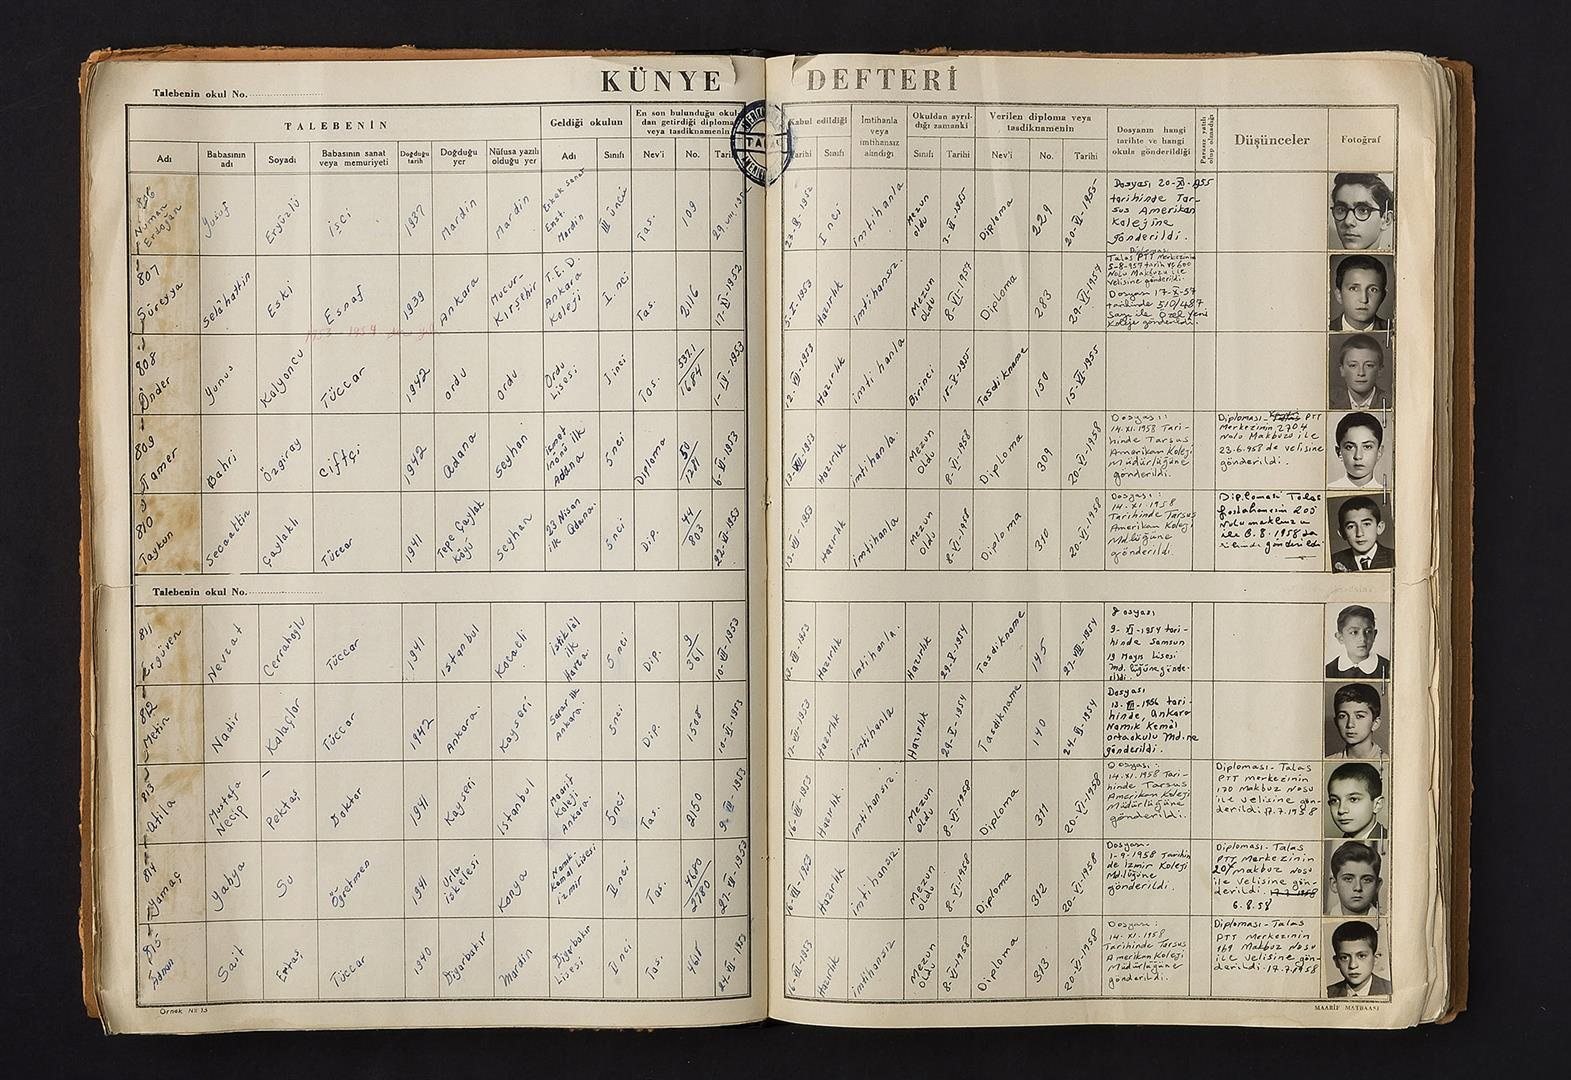 KÜNYE DEFTERİ
Talebenin okul No.
TALEBENİN
Geldiği okulun
En son bulunduğu okuldan getirdiği diploma veya tasdiknamenin
Kabul edildiği
İmtihanla veya imtihansız alındığı
Okuldan ayrıldığı zamanki
Verilen diploma veya tasdiknamenin
Dosyanın hangi tarihte ve hangi okula gönderildiği
Parasız yatılı olup olmadığı
Düşünceler
Fotoğraf
Adı
Babasının adı
Soyadı
Babasının sanat veya memuriyeti
Doğduğu tarih
Doğduğu yer
Nüfusa yazılı olduğu yer
Adı
Sınıfı
Nev'i
No.
Tarihi
Tarihi
Sınıfı
Sınıfı
Tarihi
Nev'i
No.
Tarihi
TALAS
Numan Erdoğan
Yusuf
Ergüzlü
işçi
1937
Mardin
Mardin
Erkek Sanat Enst. Mardin
III üncü
Tas.
109
I nci
imtihanla
Mezun oldu
Diploma
229
20-VI-1955
Dosyası 20-XI-1955
tarihinde Tar-
sus Amerikan
Kolejine
gönderildi.
807
Süreyya
Selâhattin
Eski
Esnaf
1939
Ankara
Mucur-Kırşehir
T.E.D. Ankara Koleji
I nci
Tas.
2116
Hazırlık
imtihansız.
Mezun oldu
8-VI-1957
Diploma
283
29-VI-1957
Talas PTT Merkezinin
5-8-957 tarih ve 600
Nolu Makbuzu ile
velisine gönderildi
Dosyası 17-X-57
tarihinde 510/487
sayı ile Özel Yeni
Koleje gönderildi.
808
Önder
Yunus
Kalyoncu
Tüccar
1942
Ordu
Ordu
Ordu Lisesi
I inci
Tas.
5321/1684
Hazırlık
imtihanla
Birinci
Tasdikname
150
15-VI-1955
809
Tamer
Bahri
Özgiray
Çiftçi
1942
Adana
Seyhan
İsmet İnönü ilk Adana
5 nci
Diploma
Hazırlık
imtihanla.
Mezun oldu
8-VI-1958
Diploma
309
20-VI-1958
Dosyası:
14.XI.1958 Tari-
hinde Tarsus
Amerikan Koleji
Müdürlüğüne
gönderildi.
Diploması - PTT
Merkezinin 2704
Nolu Makbuz ile
23.6.958 de velisine
gönderildi.
810
Taykun
Secaattin
Çaylaklı
Tüccar
1941
Tepe Çaylak Köyü
Seyhan
23 Nisan ilk Adana
5 nci
Dip.
44/803
22-VI-1953
Hazırlık
imtihanla
Mezun oldu
8-VI-1958
Diploma
310
20-VI-1958
Dosyası:
14.XI.1958
Tarihinde Tarsus
Amerikan Koleji
Md.lüğüne
gönderildi.
Diploması Talas
Postahanesin 205
Nolu makbuzu
ile 6.8.1958 de
gönderildi
Talebenin okul No.
811
Ergüven
Nevzat
Cerrahoğlu
Tüccar
1941
İstanbul
Kocaeli
İstiklâl ilk
5 nci
Dip.
Hazırlık
imtihanla.
Hazırlık
29-V-1954
Tasdikname
145
27-VIII-1954
Dosyası
9-XI-1954 tari-
hinde Samsun
19 Mayıs Lisesi
Md. lüğüne gönde-
rildi.
812
Metin
Nadir
Kalaçlar
Tüccar
1942
Ankara.
Kayseri
Sarar ilk Ankara.
5 nci
Dip.
1508
Hazırlık
imtihanla
Hazırlık
29-V-1954
Tasdikname
140
Dosyası
hinde, Ankara
Namık Kemâl
ortaokulu Md.ne
gönderildi.
813
Atila
Mustafa Necip
Pektaş
Doktor
1941
Kayseri
İstanbul
Maarif Koleji Ankara.
5 nci
Tas.
2150
Hazırlık.
imtihansız.
Mezun oldu
8-VI-1958
Diploma
311
20-VI-1958
Dosyası:
14.XI.1958 Tari-
hinde Tarsus
Amerikan Koleji
Müdürlüğüne
gönderildi.
Diploması - Talas
PTT merkezinin
170 makbuz Nosu
ile velisine gön-
derildi. 17.7.1958
814
Yamaç
Yahya
Su
Öğretmen
1941
Urla iskelesi
Konya
Namık Kemal Lisesi İzmir
II nci
Tas.
4680/2780
Hazırlık
imtihansız.
Mezun oldu
8-VI-1958
Diploma
312
20-VI-1958
Dosyası-
1-9-1958 Tarihin
de İzmir Koleji
Md.lüğüne
gönderildi.
Diploması - Talas
PTT Merkezinin
207 makbuz Nosu
ile velisine gön-
derildi. 17.7.1958
6.8.58
815
Adnan
Sait
Ertaş
Tüccar
1940
Diyarbakır
Mardin
Diyarbakır Lisesi
I inci
Tas.
4611
Hazırlık
imtihansız
Mezun oldu
8-VI-1958
Diploma
313
20-VI-1958
Dosyası:
14.XI.1958
Tarihinde Tarsus
Amerikan Koleji
Müdürlüğüne
gönderildi.
Diploması - Talas
PTT Merkezinin
169 Makbuz Nosu
ile velisine gön-
derildi. 17.7.1958
Örnek No 15
MAARİF MATBAASI